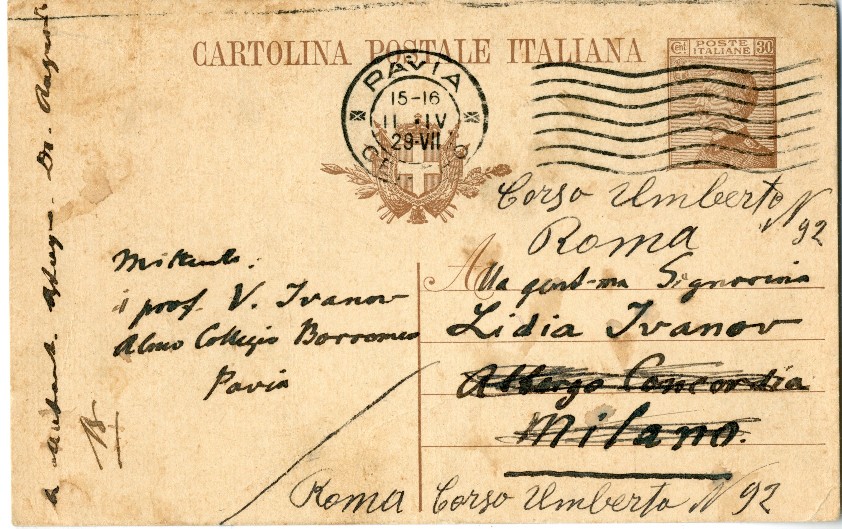 CARTOLINA POSTALE ITALIANA
Cent POSTE ITALIANE 30
PAVIA
15-16
11 · IV
29-VII
Corso Umberto N 92
Roma
Alla gent-ma Signorina
Lidia Ivanov
Albergo Concordia
Milano.
Roma Corso Umberto N 92
Mittente:
il prof. V. Ivanov
Almo Collegio Borromeo
Pavia